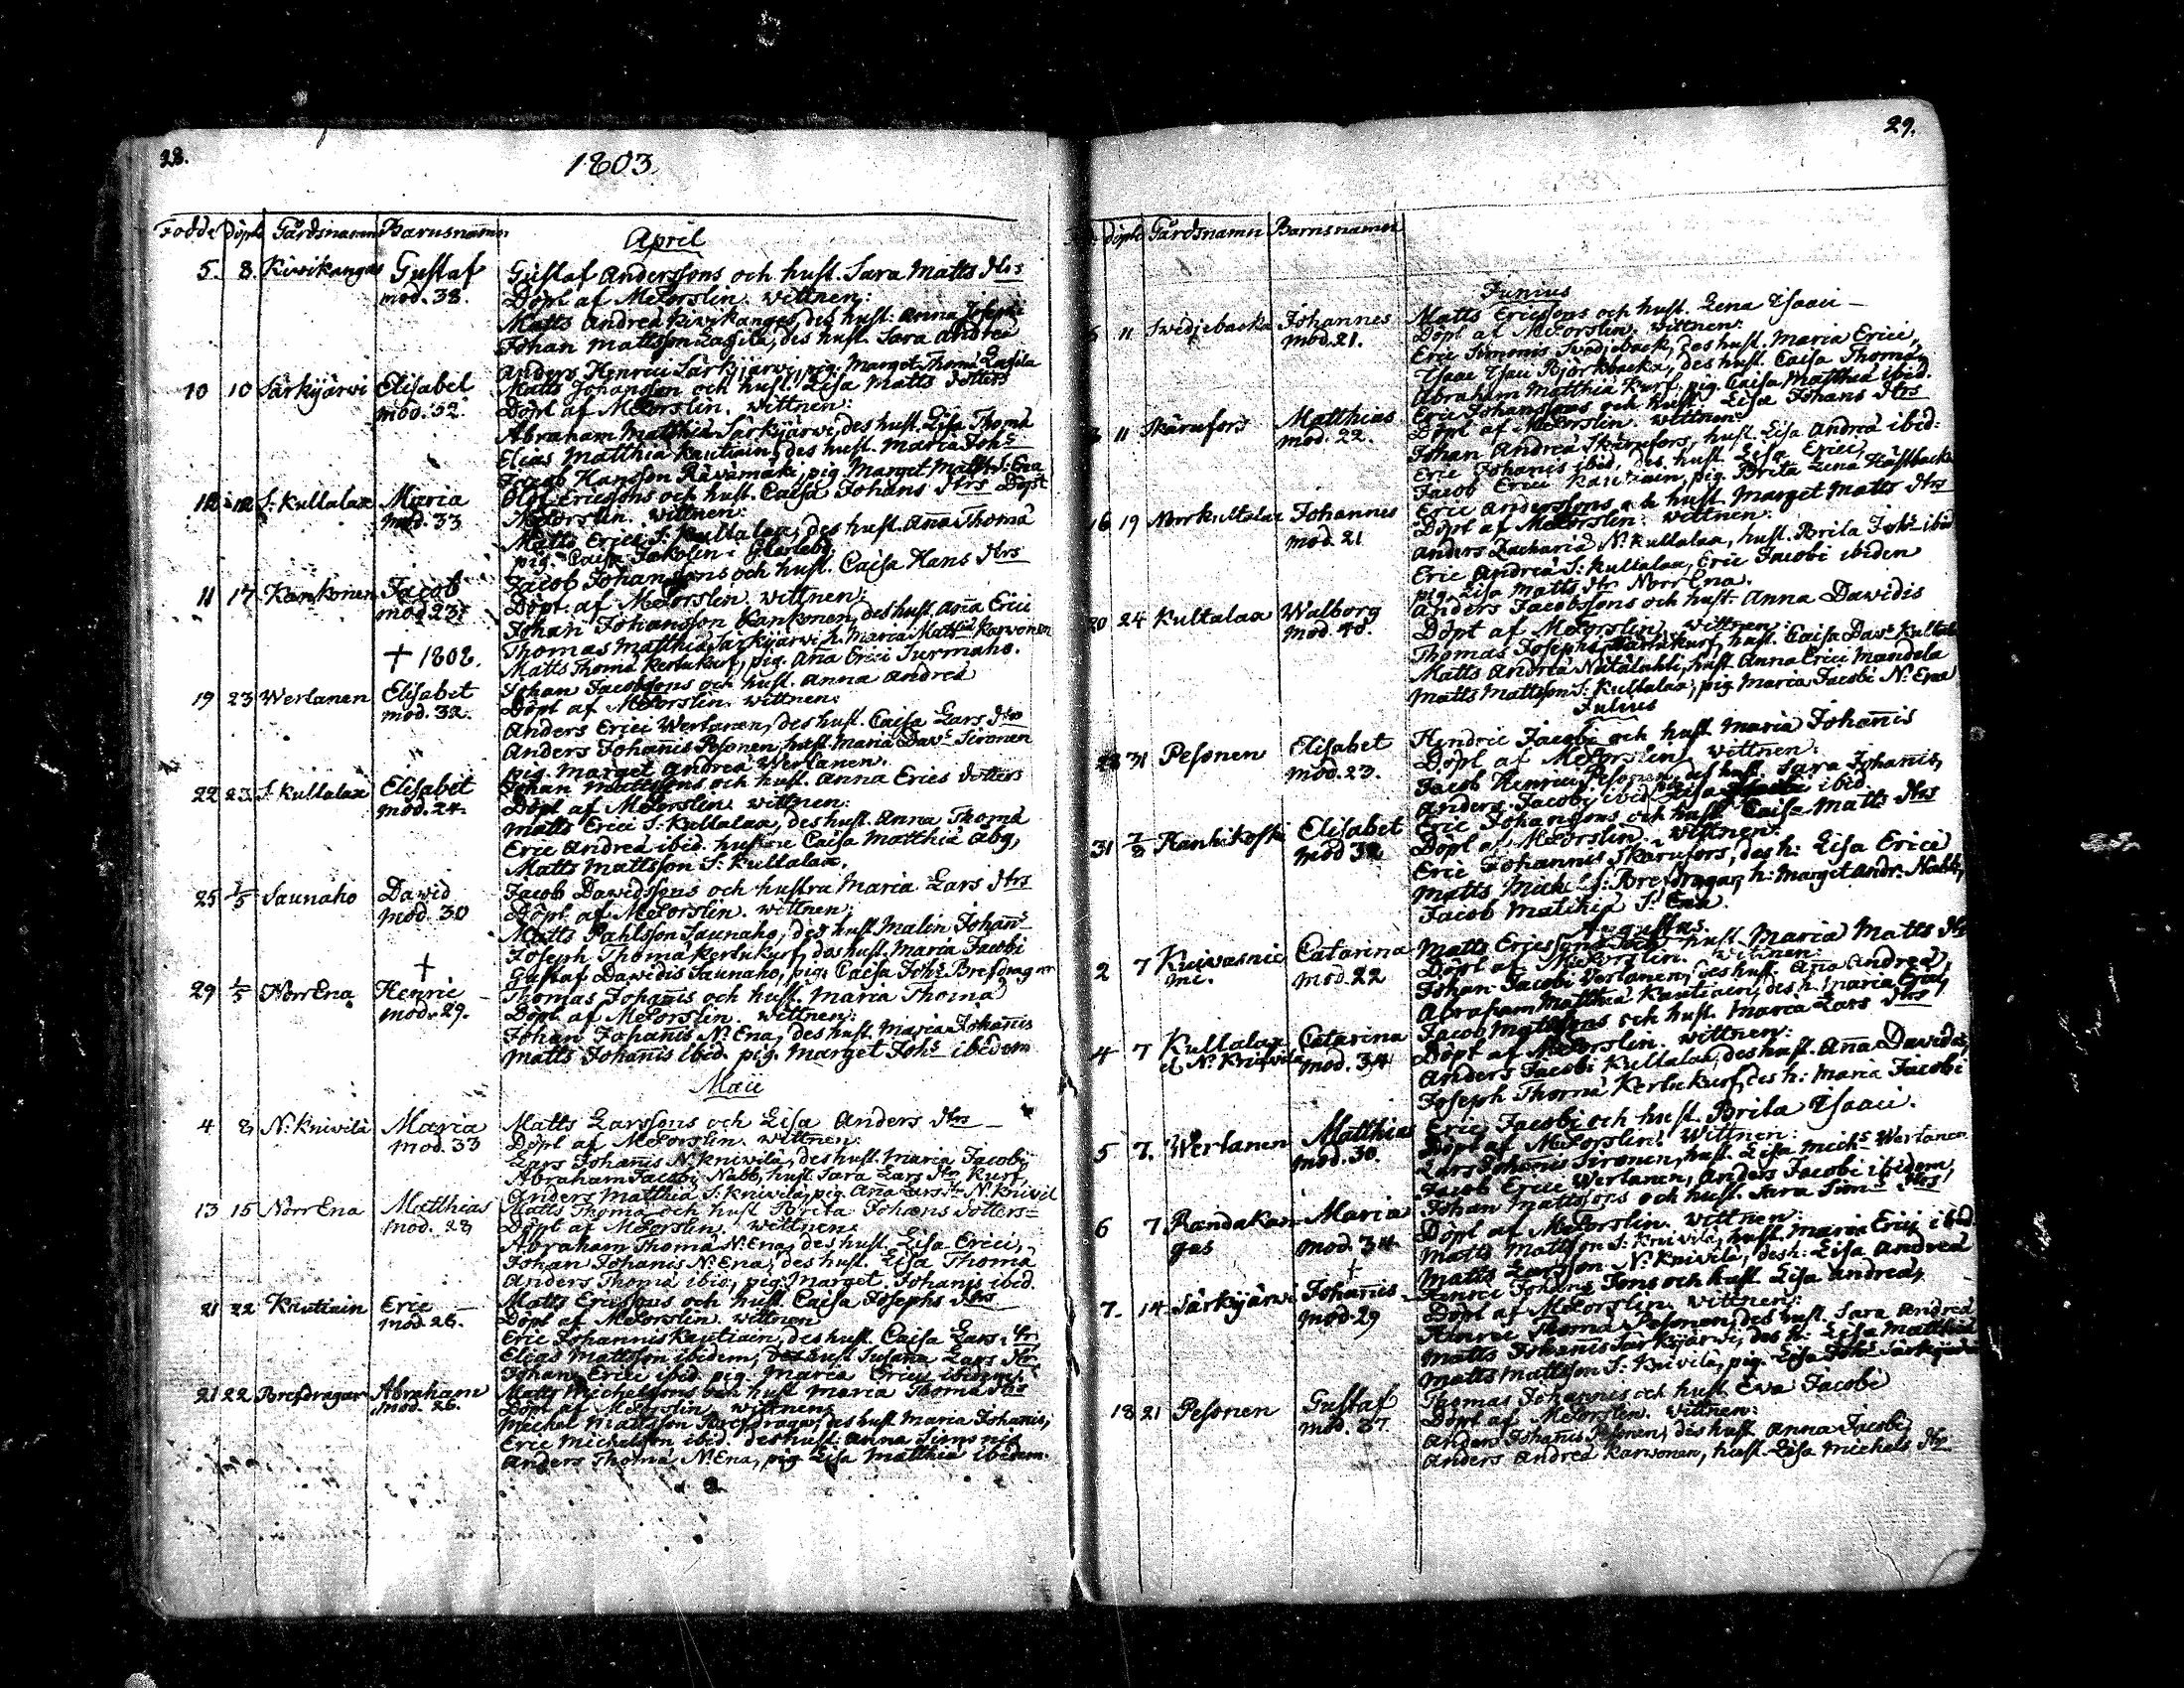 28.
1803
Födde Döpte Gårdsnamn Barnsnamn
April
5. 8. Kivikangas Gustaf Gustaf Anderssons och hust. Sara Matts dtrs
mod. 38. Döpt af M. Forslin. Wittnen:
Matts Andreæ Kivikangas, des hust: Anna Josephi
Johan Mattsson Lassila, des hust. Sara Andreæ
Anders Henrici Särkijärvi, pig. Marget Thomæ Lassila
10 10 Särkijärvi Elisabet Matts Johansson och hust. Lisa Matts dotters
mod. 32. Döpt af M. Forslin. Wittnen:
Abraham Matthiæ Särkijärvi, des hust. Lisa Thomæ
Elias Matthiæ Kautiain, des hust. Maria Johs
Jacob Hansson Rävämäki, pig. Marget Matts S. Ena
12 12 S. Kultalax Maria Olof Ericssons och hust. Caisa Johans dtrs Döpt
mod. 33 M. Forslin. Wittnen:
Matts Erici S. Kultalax, des hust. Anna Thomæ
pig. Caisa Jakolin i Glarleby
11 17 Kankonen Jacob Jacob Johanssons och hust. Caisa Hans dtrs
mod 23. Döpt af M. Forslin. Wittnen:
Johan Johansson Kankonen, des hust. Anna Erici
Thomas Matthiæ Särkijärvi h. Maria Matthiæ Karvonen
† 1808. Matts Thomæ Kerttukurf, pig. Anna Erici Surmaho.
19 23 Wertanen Elisabet Johan Jacobssons och hust. Anna Andreæ
mod. 32. Döpt af M. Forslin. Wittnen:
Anders Erici Wertanen, des hust. Caisa Lars dtr
Anders Johannis Pesonen, hust. Maria Davs Sironen
pig. Marget Andreæ Wertanen.
22 23 S. Kultalax Elisabet Johan Mattssons och hust. Anna Erics dotters
mod. 24. Döpt af M. Forslin. Wittnen:
Matts Erici S. Kultalax, des hust. Anna Thomæ
Eric Andreæ ibid. Caisa Matthiæ
Matts Mattsson S. Kultalax.
25 1/5 Saunaho Dawid Jacob Dawidssons och hustru Maria Lars dtrs
mod. 30 Döpt af M. Forslin. Wittnen:
Matts Pahlsson Saunaho, des hust. Malin Johans
Joseph Thomæ Kerttukurf, des hust. Maria Jacobi
† Gustaf Dawidis Saunaho, pig. Caisa Johs Brefdragar
29 1/5 NorrEna Henric Thomas Johannis och hust. Maria Thomæ
mod. 29. Döpt af M. Forslin. Wittnen:
Johan Johannis N. Ena, des hust. Maria Johannis
Matts Johannis ibid. pig. Marget Johs ibidem
Maii
4 8 N. Knivilä Maria Matts Larssons och Lisa Anders dtrs
mod. 33 Döpt af M. Forslin. Wittnen:
Lars Johannis N. Knivilä, des hust. Maria Jacobi
Abraham Jacobi Nabb, hust. Sara Lars dtr Kurf,
Anders Matthiæ S. Knivilä, pig. Anna Lars dtr N. Knivil
13 15 NorrEna Matthias Matts Thomæ och hust Brita Johans dotters
mod. 28 Döpt af M. Forslin. Wittnen:
Abraham Thomæ N. Ena, des hust. Lisa Erici,
Johan Johanis N. Ena, des hust. Lisa Thomæ
Anders Thomæ ibid, pig. Marget Johanis ibid.
21 22 Kautiain Eric Matts Ericssons och hust. Caisa Josephs dtrs
mod. 26. Döpt af M. Forslin Wittnen
Eric Johannis Kautiain, des hust. Caisa Lars dtr,
Elias Mattsson ibidem, hust. Susana Lars dtr
Johan Erici ibid. pig. Maria Erici ibidem.
21 22 Brefdragar Abraham Matts Michelssons och hust Maria Thomæ dtrs
mod. 26. Döpt af M. Forslin. Wittnen:
Michel Mattsson Brefdragar, des hust Maria Johanis,
Eric Michelsson ibid. des hust. Anna Simonis
Anders Thomæ N. Ena, pig Lisa Matthiæ ibidem.
29.
Döpte Gårdsnamn Barnsnamn
Junius
11 Swedjebacka Johannes Matts Ericssons och hust. Lena Isaaci
mod. 21. Döpt af M. Forslin. Wittnen:
Eric Simonis Swedjeback, des hust. Maria Erici,
Isaac Isaci Björkbacka, des hust. Caisa Thomæ,
Abraham Matthiæ Kurf, pig. Caisa Matthiæ ibid.
11 Skärufors Matthias Eric Johanssons och hust. Lisa Johans dtrs
mod. 22. Döpt af M. Forslin. Wittnen:
Johan Andreæ Skärufors, hust. Lisa Andreæ ibid:
Eric Johanis ibid, des. hust. Lisa Erici,
Jacob Erici Kautiain, pig. Brita Lena Hästbacka
16 19 Norrkultalax Johannes Eric Anderssons och hust. Marget Matts dtrs
mod. 21 Döpt af M. Forslin. Wittnen:
Anders Zachariæ N. Kultalax, hust. Brita Johs ibid
Eric Andreæ S. Kultalax, Eric Jacobi ibidem
pig. Lisa Matts dtr Norr Ena.
20 24 Kultalax Walborg Anders Jacobssons och hust. Anna Dawidis
mod. 40. Döpt af M. Forslin. Wittnen:
Thomas Josephi Kerttukurf, hust. Caisa Davs Kultalax
Matts Andreæ hust. Anna Erici Mandela
Matts Mattsson S. Kultalax, pig Maria Jacobi N. Ena
Julius
28 31 Pesonen Elisabet Hendric Jacobi och hust Maria Johanis
mod. 23. Döpt af M. Forslin. Wittnen:
Jacob Henrici Pesonen, des hust. Sara Johanis,
Anders Jacobi ibid, Lisa ibid
31 7/8 Hanhikoski Elisabet Eric Johanssons och hust Caisa Matts dtrs
mod 32 Döpt af M. Forslin. Wittnen:
Eric Johannis Skärufors, des h: Lisa Erici
Matts Mickelss: Brefdragar, h: Marget Andr. Nabb,
Jacob Matthiæ S. Ena.
Augustus
2 7 Kuivasnie Catarina Matts Ericssons och hust Maria Matts dtr
mi. mod. 22 Döpt af M. Forslin. Wittnen:
Johan Jacobi Vertanen, des hust. Anna Andreæ,
Abraham Matthiæ Kautiain, des h. Maria
4 7 Kultalax Catarina Jacob Mattssons och hust. Maria Lars dtrs
el. N. Knivilä mod. 34 Döpt af M. Forslin. Wittnen:
Anders Jacobi Kultalax, des hust. Anna Dawidis,
Joseph Thomæ Kerttukurf, des h: Maria Jacobi
5 7. Wertanen Matthias Eric Jacobi och hust Brita Isaaci.
mod. 30. Döpt af M. Forslin. Wittnen:
Lars Johanis Sironen, hust. Lisa Michs Wertanen
Jacob Erici Wertanen, Anders Jacobi ibidem
6 7 Randakan- Maria Johan Mattssons och hust. Sara Sims dtrs
gas mod. 34 Döpt af M. Forslin. Wittnen:
Matts Mattsson S. Knivilä, hust. Maria Erici ibid.
† Matts Larsson N. Knivilä, des h. Lisa Andreæ
7. 14. Särkijärvi Johanis Henric Johans Sons och hust Lisa Andreæ,
mod. 29 Döpt af M. Forslin. Wittnen:
Henric Thomæ Pesonen, des hust. Sara Andreæ
Matts Johanis Särkijärvi, des h: Lisa Matthiæ
Matts Mattsson S. Knivilä, pig. Lisa Johs Särkijärvi
18 21 Pesonen Gustaf Thomas Johannis och hust Eva Jacobi
mod. 37. Döpt af M. Forslin. Wittnen:
Anders Johanis Pesonen, des hust Anna Jacobi,
Anders Andreæ Karvonen, hust. Lisa Michels dtr